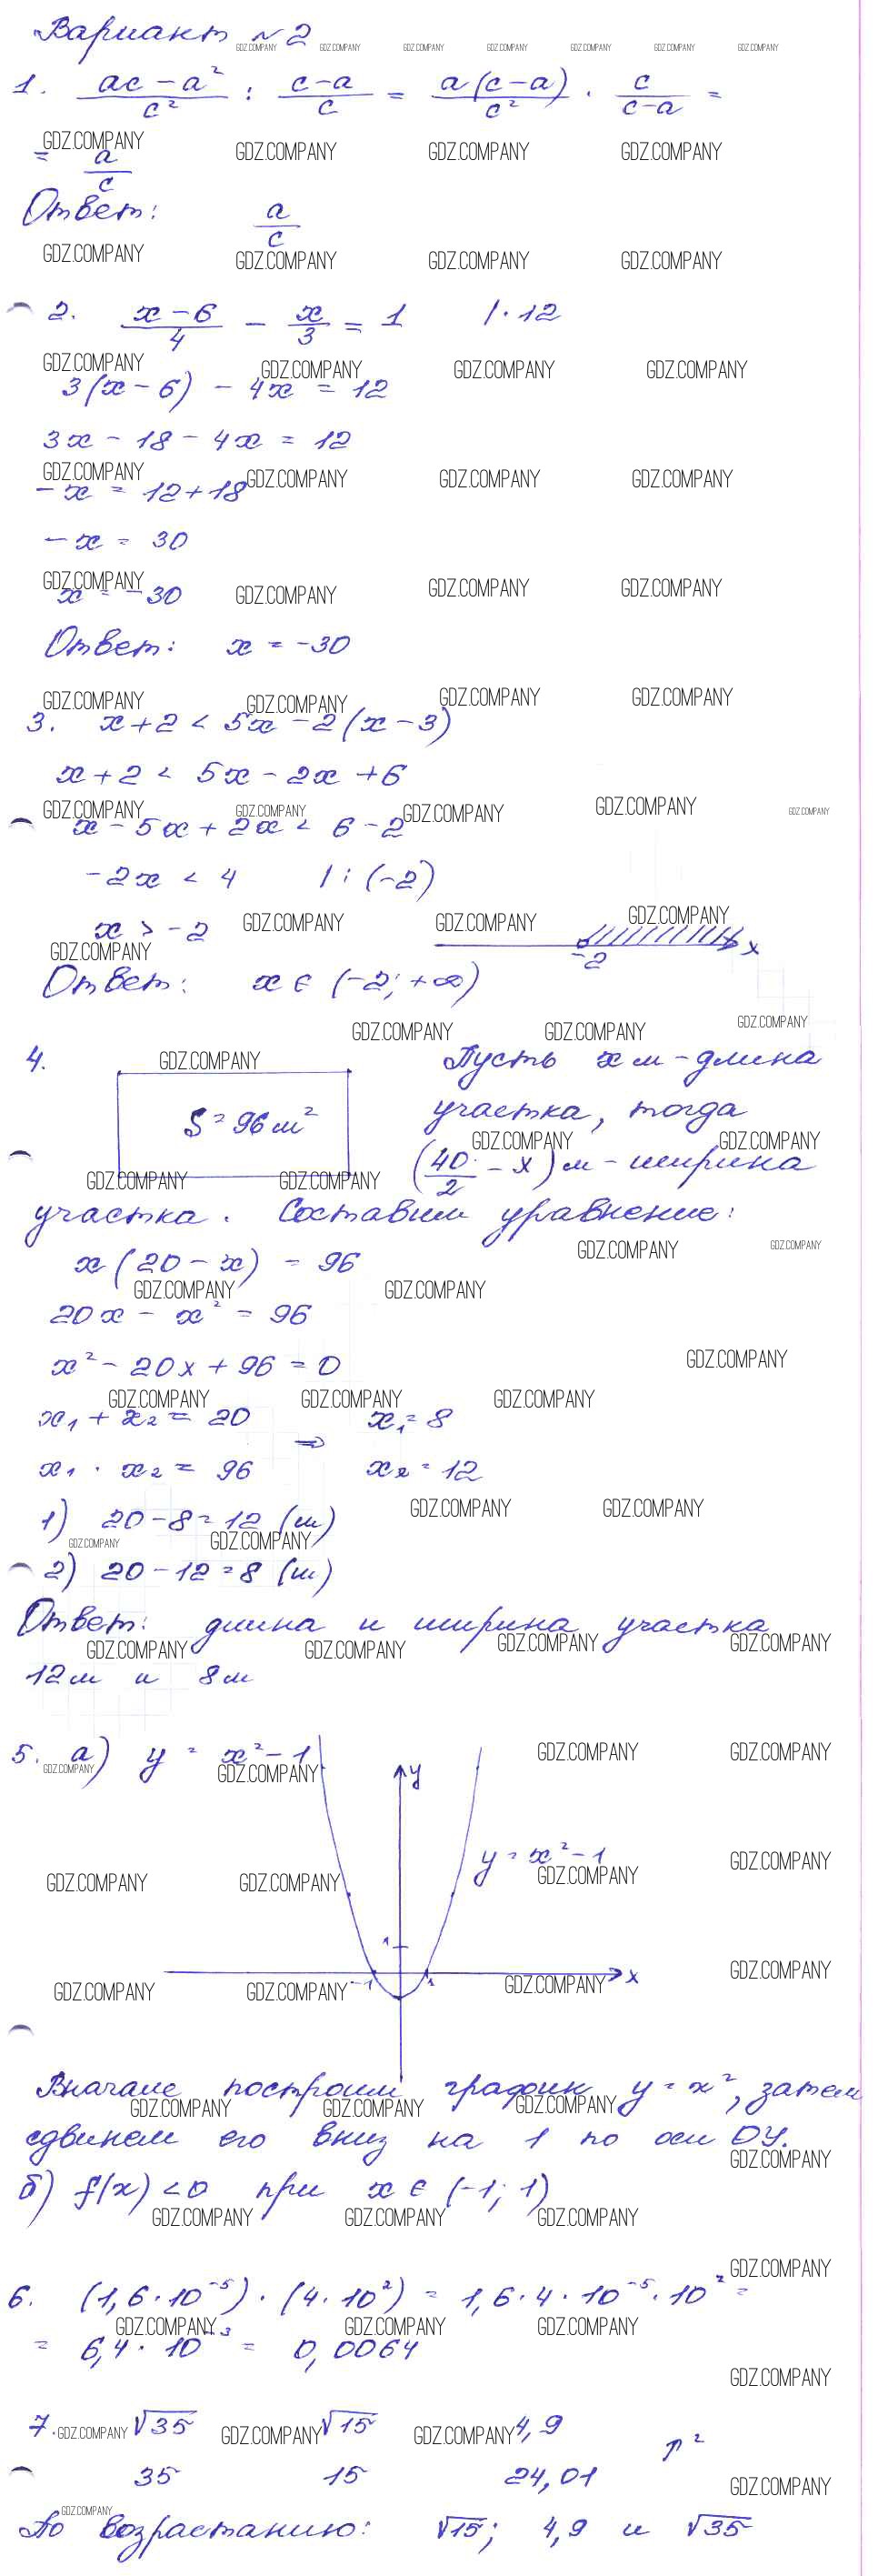 Вариант №2
1. (ac − a²)/c² : (c−a)/c = a(c−a)/c² · c/(c−a) =
= a/c
Ответ: a/c
2. (x−6)/4 − x/3 = 1 | · 12
3(x − 6) − 4x = 12
3x − 18 − 4x = 12
−x = 12 + 18
−x = 30
x = −30
Ответ: x = −30
3. x + 2 < 5x − 2(x − 3)
x + 2 < 5x − 2x + 6
x − 5x + 2x < 6 − 2
−2x < 4 | : (−2)
x > −2
−2 x
Ответ: x ∈ (−2; +∞)
4. S = 96 м² Пусть x м – длина
участка, тогда
(40/2 − x) м – ширина
участка. Составим уравнение:
x(20 − x) = 96
20x − x² = 96
x² − 20x + 96 = 0
x₁ + x₂ = 20 ⇒ x₁ = 8
x₁ · x₂ = 96 x₂ = 12
1) 20 − 8 = 12 (м)
2) 20 − 12 = 8 (м)
Ответ: длина и ширина участка
12 м и 8 м
5. а) y = x² − 1
y
y = x² − 1
1
−1 1 x
Вначале построим график y = x², затем
сдвинем его вниз на 1 по оси OY.
б) f(x) < 0 при x ∈ (−1; 1)
6. (1,6 · 10⁻⁵) · (4 · 10²) = 1,6 · 4 · 10⁻⁵ · 10² =
= 6,4 · 10⁻³ = 0,0064
7. √35 √15 4,9
↑²
35 15 24,01
По возрастанию: √15; 4,9 и √35
GDZ.COMPANY